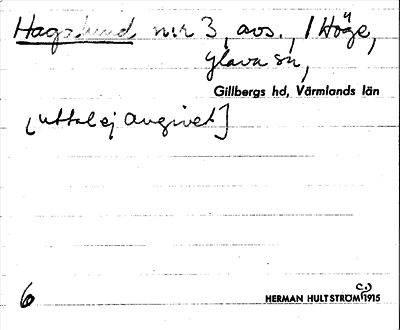 Hagalund nr 3, avs., 1 Höge,
Glava sn,
Gillbergs hd, Värmlands län
[uttal ej angivet]
6
HERMAN HULTSTRÖM (c.) 1915